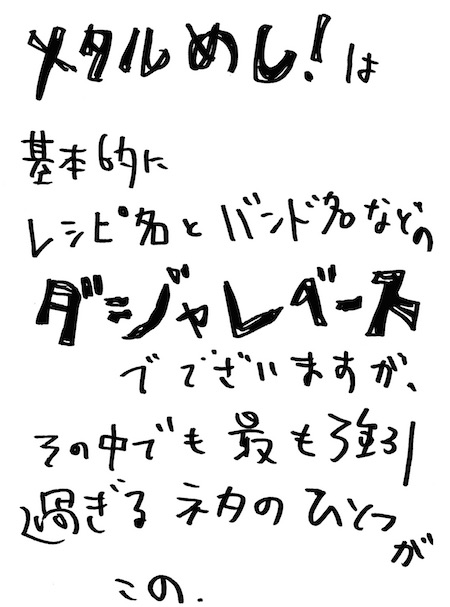 メタルめし!は
基本的に
レシピ名とバンド名などの
ダジャレベース
でございますが、
その中でも最も強引
過ぎるネタのひとつが
この.